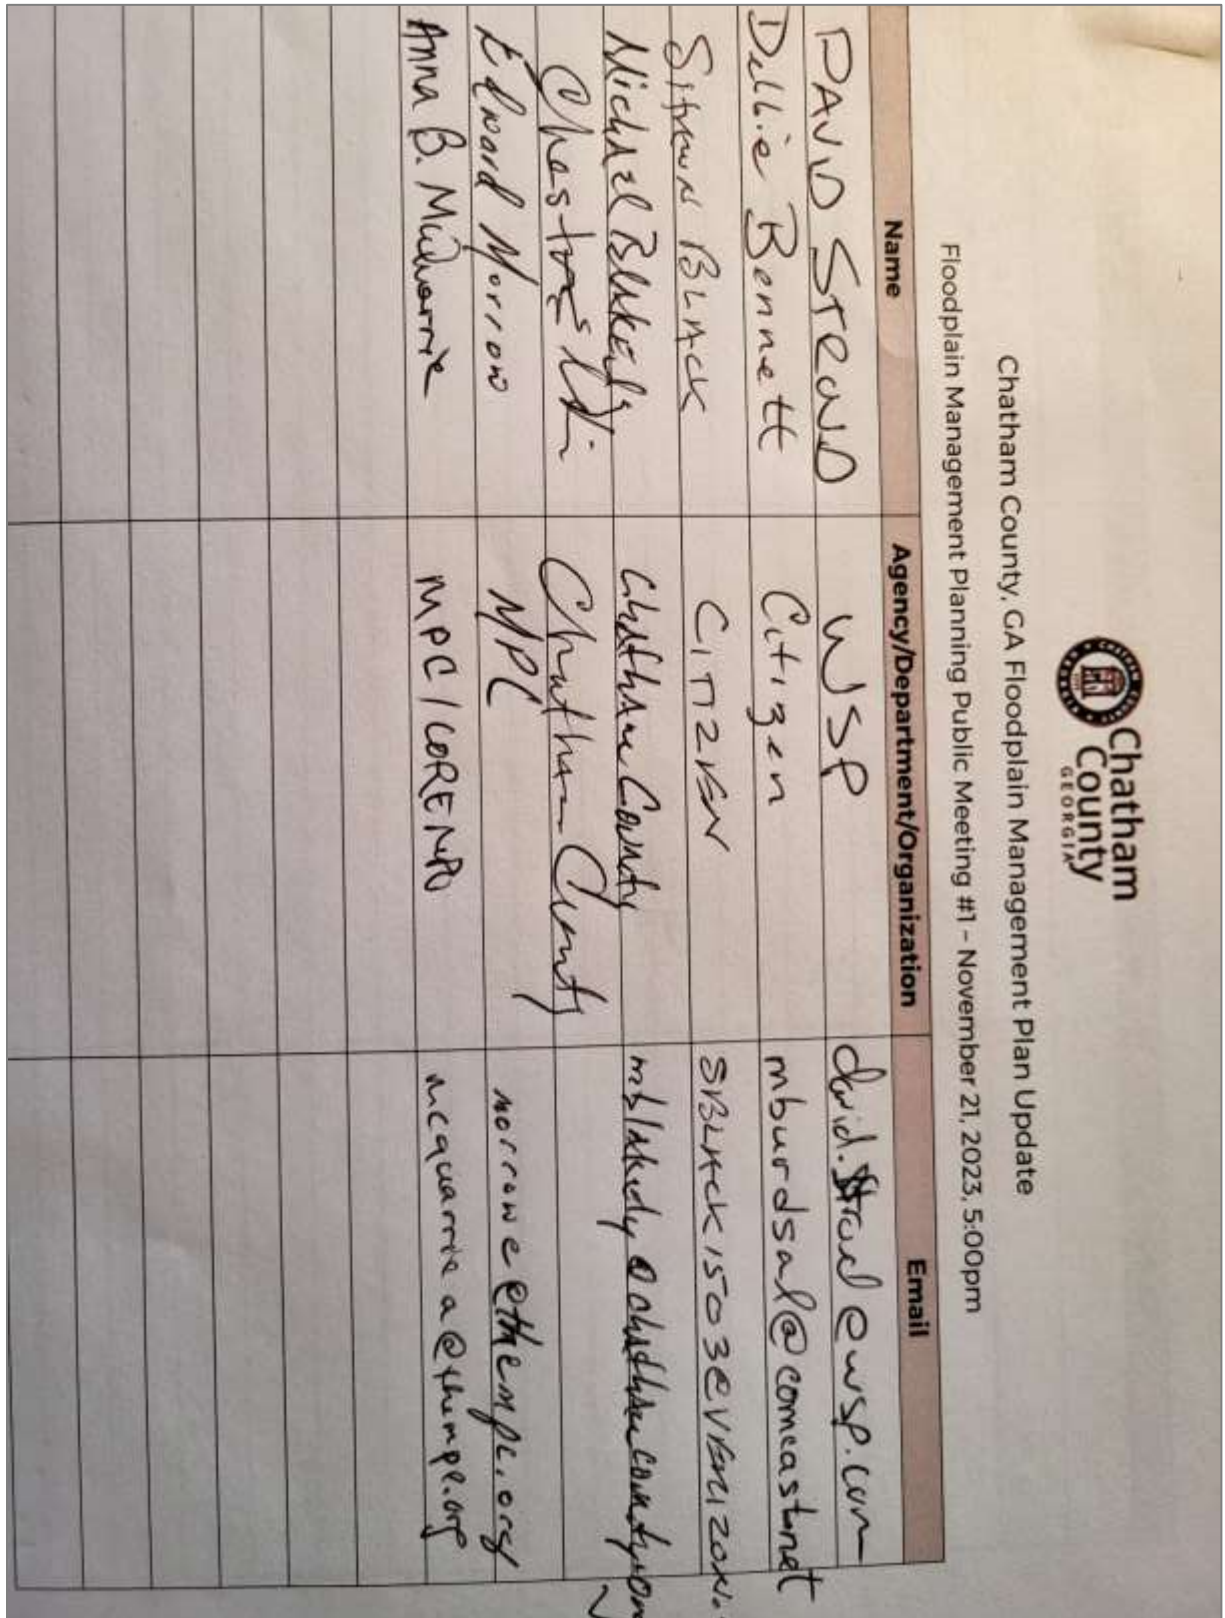 Chatham
County
GEORGIA
Chatham County, GA Floodplain Management Plan Update
Floodplain Management Planning Public Meeting #1 - November 21, 2023, 5:00pm
Name Agency/Department/Organization Email
DAVID STROUD WSP david.stroud@wsp.com
Debbie Bennett Citizen mburdsal@comcast.net
BLACK CITIZEN SBLACK1503@VERIZON.
Michael Blakely Chatham County mblakely@chathamcounty.org
Chatham County
Edward Morrow MPC morrowe@thempc.org
Anna B. McQuarrie MPC/CORE MPO mcquarriea@thempc.org